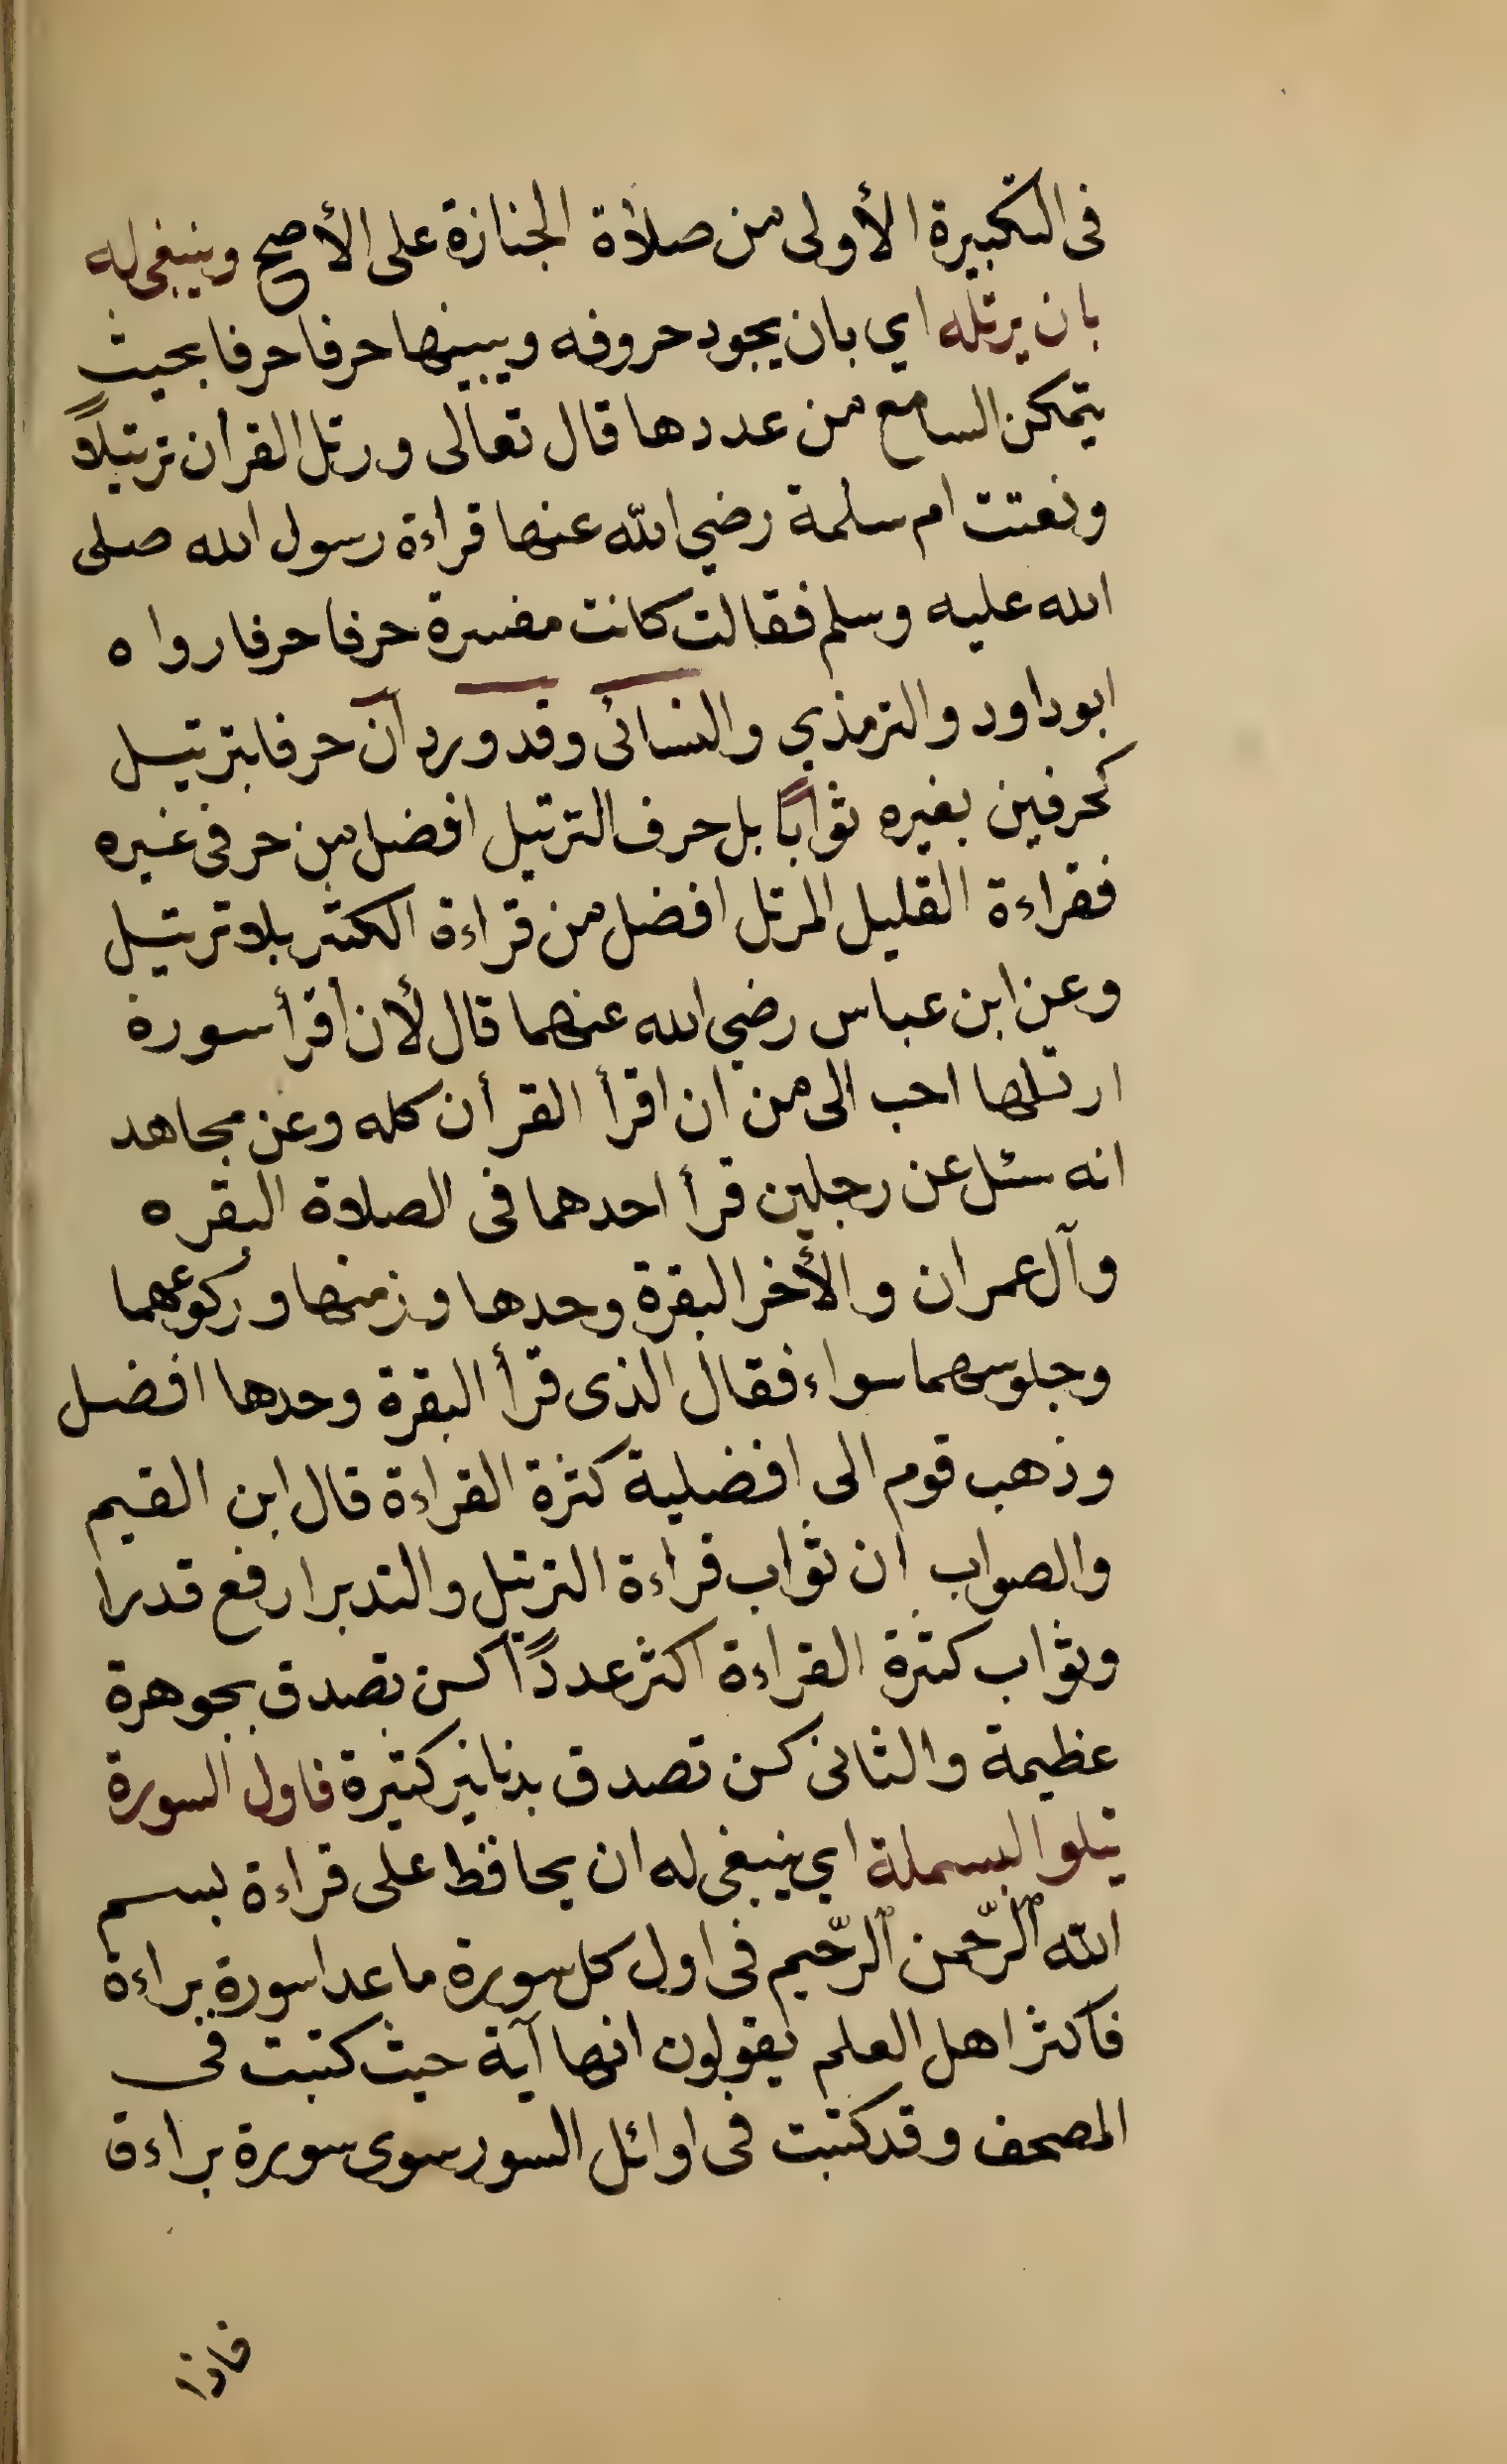 فى التكبيرة الأولى من صلاة الجنازة على الأصح وينبغى له
بان يرتله اي بان يجود حروفه ويبينها حرفا حرفا بحيث
يتمكن السامع من عددها قال تعالى ورتل القرأن ترتيلاً
ونعتت ام سلمة رضي الله عنها قراءة رسول الله صلى
الله عليه وسلم فقالت كانت مفسرة حرفا حرفا رواه
ابو داود والترمذي والنسائى وقد ورد ان حرفا بترتيل
كحرفين بغيره ثواباً بل حرف الترتيل افضل من حرفى غيره
فقراءة القليل المرتل افضل من قراءة الكثير بلا ترتيل
وعن ابن عباس رضي الله عنهما قال لأن أقرأ سورة
ارتلها احب الى من ان اقرأ القرأن كله وعن مجاهد
انه سئل عن رجلين قرأ احدهما فى الصلاة البقره
وآل عمران والأخر البقرة وحدها وزمنها وركوعهما
وجلوسهما سواء فقال الذى قرأ البقرة وحدها افضل
وذهب قوم الى افضلية كثرة القراءة قال ابن القيم
والصواب ان ثواب قراءة الترتيل والتدبر ارفع قدرا
وثواب كثرة القراءة اكثر عدداً كمن تصدق بجوهرة
عظيمة والثانى كمن تصدق بدنانير كثيرة فاول السورة
يتلو البسملة اي ينبغى له ان يحافظ على قراءة بسم
الله الرّحمن الرّحيم فى اول كل سورة ما عدا سورة براءة
فأكثر اهل العلم يقولون انها آية حيث كتبت فى
المصحف وقد كتبت فى اوائل السور سوى سورة براءة
فاذا